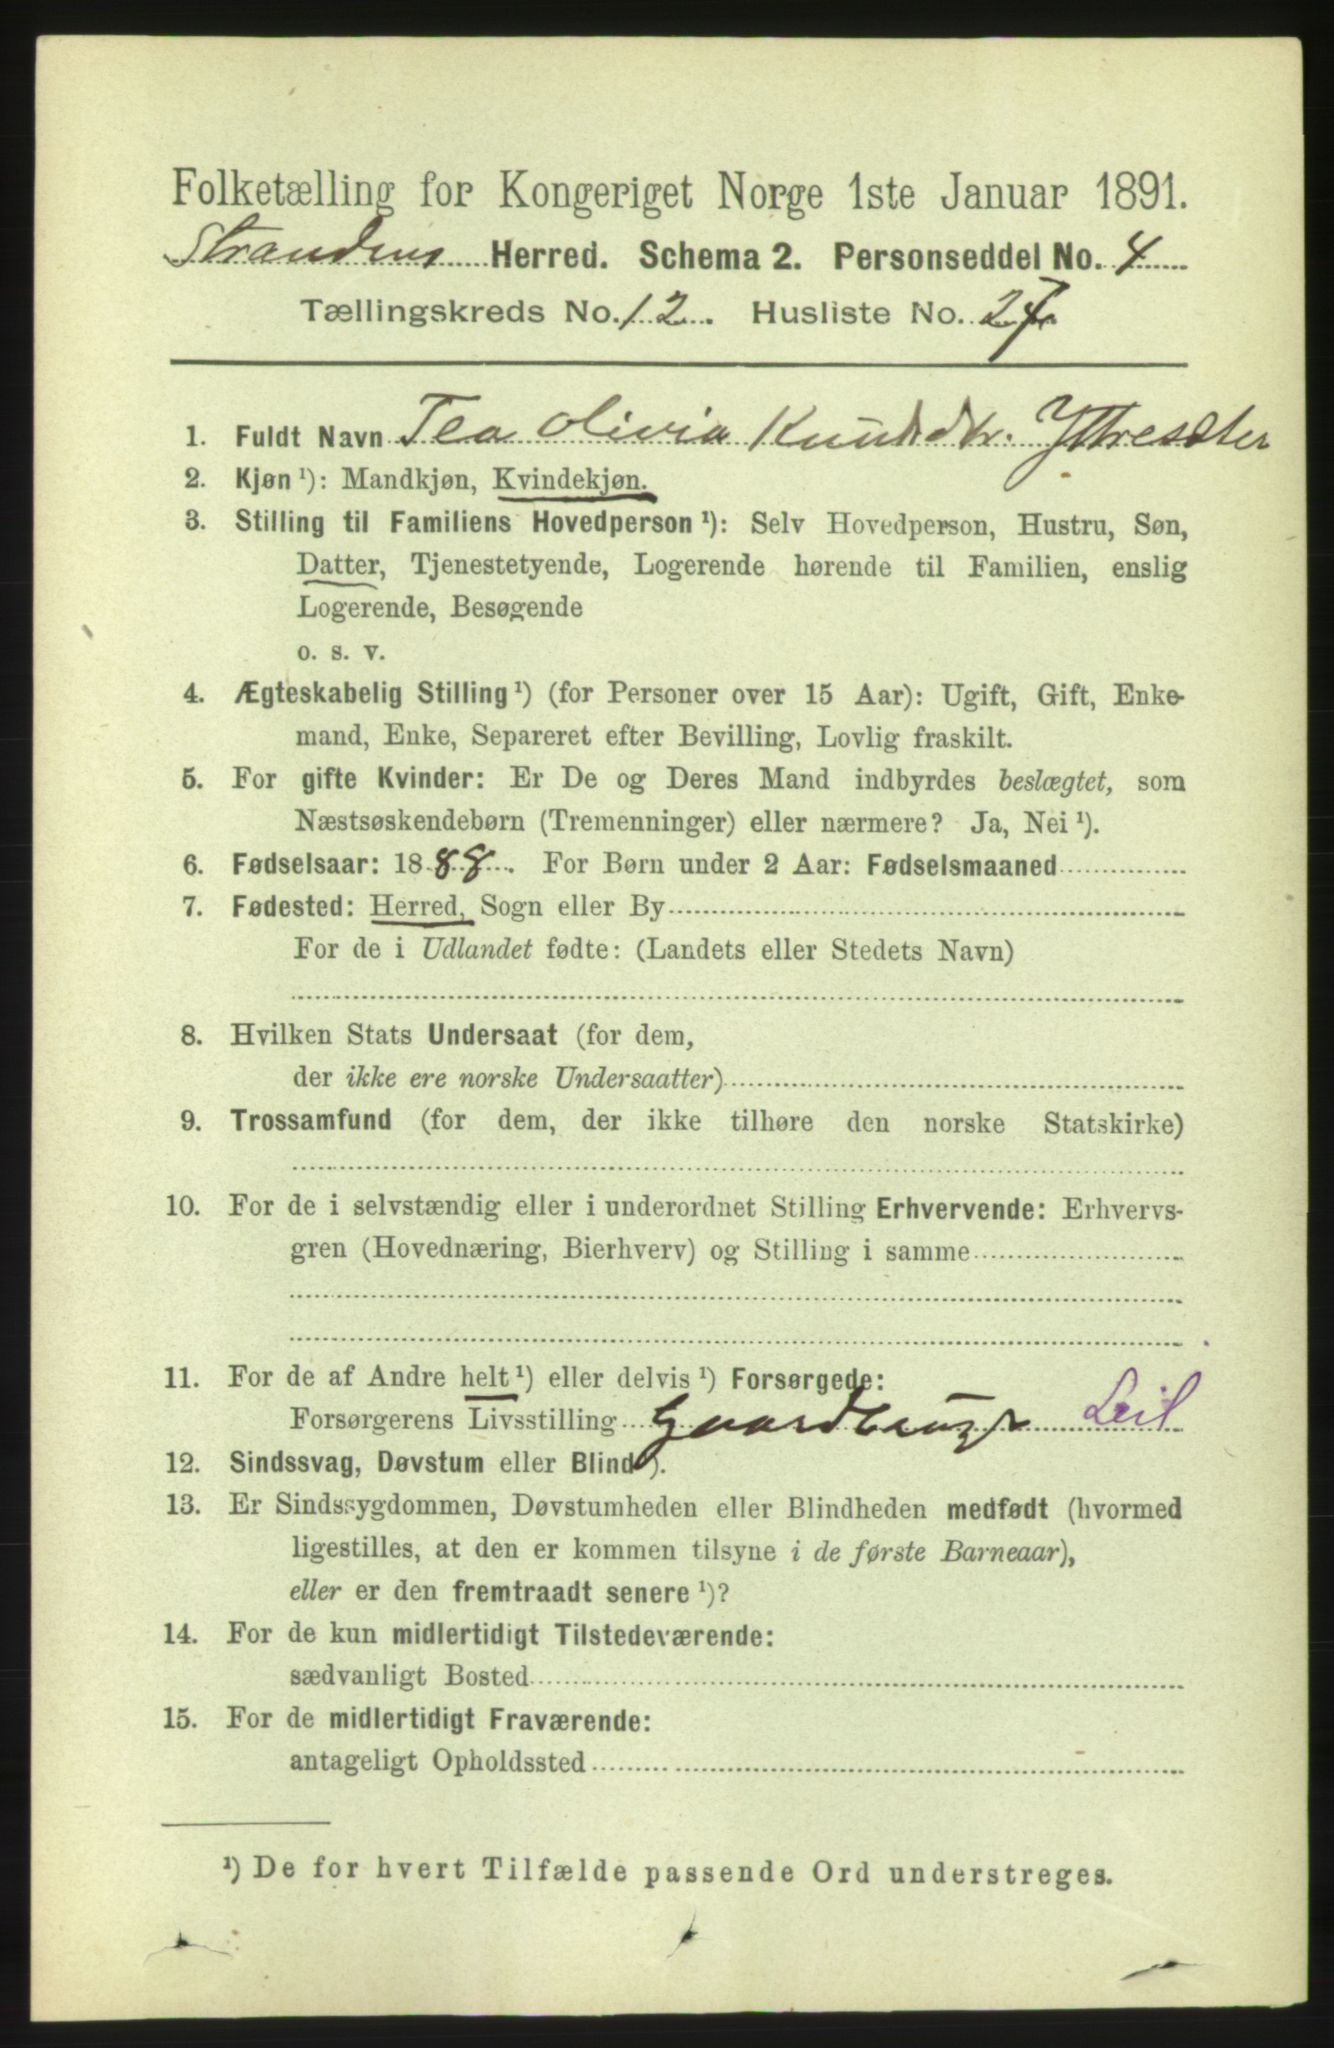 Folketælling for Kongeriget Norge 1ste Januar 1891.
Strandens Herred. Schema 2. Personseddel No. 4
Tællingskreds No. 12. Husliste No. 27.
1. Fuldt Navn Tea Olivia Knudsdtr. Yttresæter
2. Kjøn ¹): Mandkjøn, Kvindekjøn.
3. Stilling til Familiens Hovedperson ¹): Selv Hovedperson, Hustru, Søn,
Datter, Tjenestetyende, Logerende hørende til Familien, enslig
Logerende, Besøgende
o. s. v.
4. Ægteskabelig Stilling ¹) (for Personer over 15 Aar): Ugift, Gift, Enke-
mand, Enke, Separeret efter Bevilling, Lovlig fraskilt.
5. For gifte Kvinder: Er De og Deres Mand indbyrdes beslægtet, som
Næstsøskendebørn (Tremenninger) eller nærmere? Ja, Nei ¹).
6. Fødselsaar: 1888. For Børn under 2 Aar: Fødselsmaaned
7. Fødested: Herred, Sogn eller By
For de i Udlandet fødte: (Landets eller Stedets Navn)
8. Hvilken Stats Undersaat (for dem,
der ikke ere norske Undersaatter)
9. Trossamfund (for dem, der ikke tilhøre den norske Statskirke)
10. For de i selvstændig eller i underordnet Stilling Erhvervende: Erhvervs-
gren (Hovednæring, Bierhverv) og Stilling i samme
11. For de af Andre helt ¹) eller delvis ¹) Forsørgede:
Forsørgerens Livsstilling Gaardbruger Leil
12. Sindssvag, Døvstum eller Blind ¹).
13. Er Sindssygdommen, Døvstumheden eller Blindheden medfødt (hvormed
ligestilles, at den er kommen tilsyne i de første Barneaar),
eller er den fremtraadt senere ¹)?
14. For de kun midlertidigt Tilstedeværende:
sædvanligt Bosted
15. For de midlertidigt Fraværende:
antageligt Opholdssted
¹) De for hvert Tilfælde passende Ord understreges.